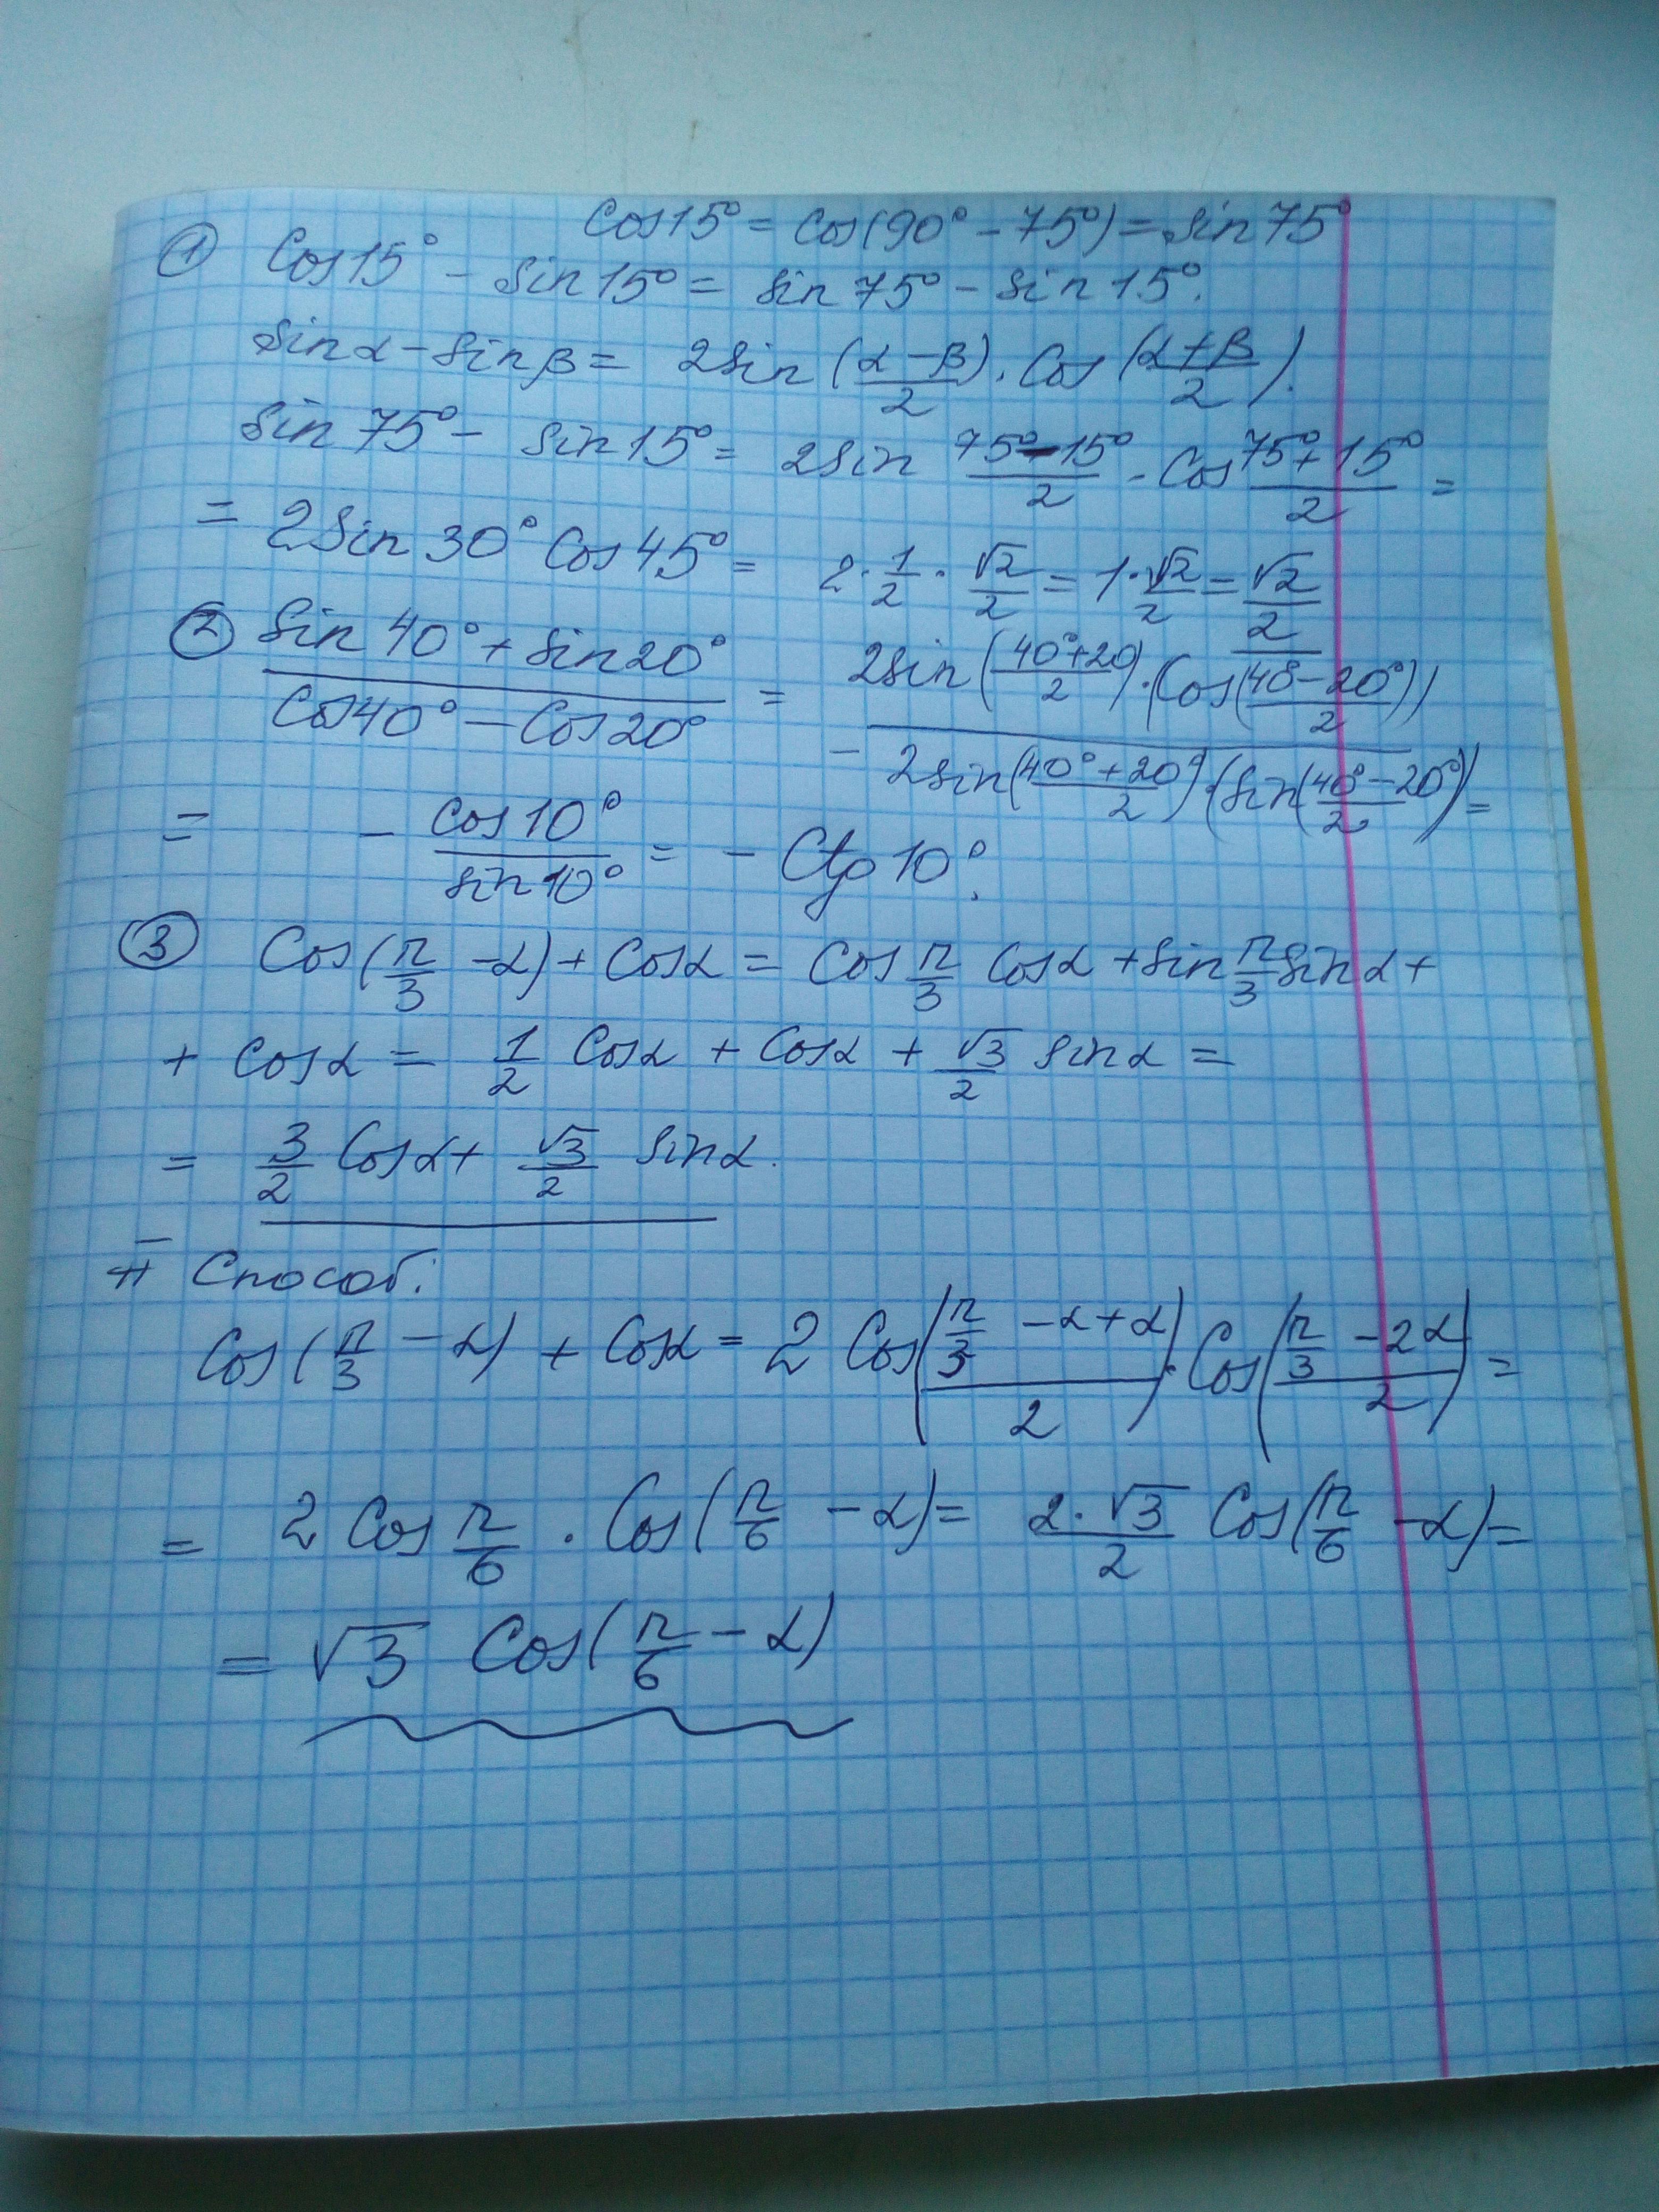 cos15° = cos(90° − 75°) = sin75°
① cos15° − sin15° = sin75° − sin15°.
sinα − sinβ = 2sin((α−β)/2) · cos((α+β)/2).
sin75° − sin15° = 2sin (75°−15°)/2 · cos (75°+15°)/2 =
= 2sin30° cos45° = 2·1/2·√2/2 = 1·√2/2 = √2/2
② (sin40° + sin20°)/(cos40° − cos20°) = (2sin((40°+20)/2)·(cos((40−20°)/2)))/(−2sin((40°+20°)/2)·(sin((40°−20°)/2)) =
= − cos10°/sin10° = − ctg10°.
③ cos(π/3 − α) + cosα = cos π/3 cosα + sin π/3 sinα +
+ cosα = 1/2 cosα + cosα + √3/2 sinα =
= 3/2 cosα + √3/2 sinα.
II Способ:
cos(π/3 − α) + cosα = 2 cos((π/3 − α + α)/2) · cos((π/3 − 2α)/2) =
= 2 cos π/6 · cos(π/6 − α) = 2·√3/2 cos(π/6 − α) =
= √3 cos(π/6 − α)